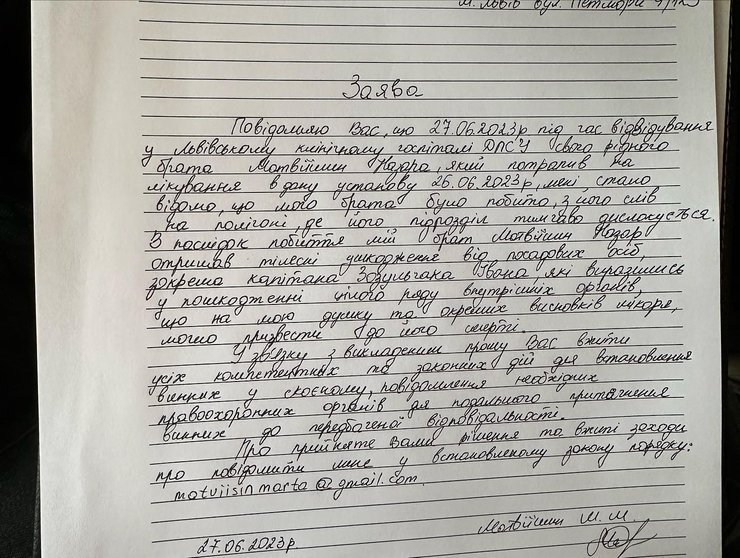 м. Львів вул. Петлюри
Заява
Повідомляю Вас, що 27.06.2023р під час відвідування
у Львівському клінічному госпіталі ДПСУ свого рідного
брата Матвіїшин Назара, який потрапив на
лікування в дану установу 26.06.2023р, мені, стало
відомо, що мого брата було побито, з його слів
, на полігоні, де його підрозділ тимчасово дислокується.
В наслідок побиття мій брат Матвіїшин Назар
отримав тілесні ушкодження від посадових осіб,
зокрема капітана Зозульчака Івана які виразились
у пошкодженні цілого ряду внутрішніх органів,
що на мою думку та окремих висновків лікаря,
могло призвести до його смерті.
У зв'язку з викладеним прошу Вас вжити
усіх компетентних та законних дій для встановлення
винних у скоєному, повідомлення необхідних
правоохоронних органів для подальшого притягнення
винних до передбаченої відповідальності.
Про прийняте Вами рішення та вжиті заходи
про повідомити мене у встановленому закону порядку:
matviisinmarta@gmail.com
Матвіїшин М. М.
27.06.2023р.